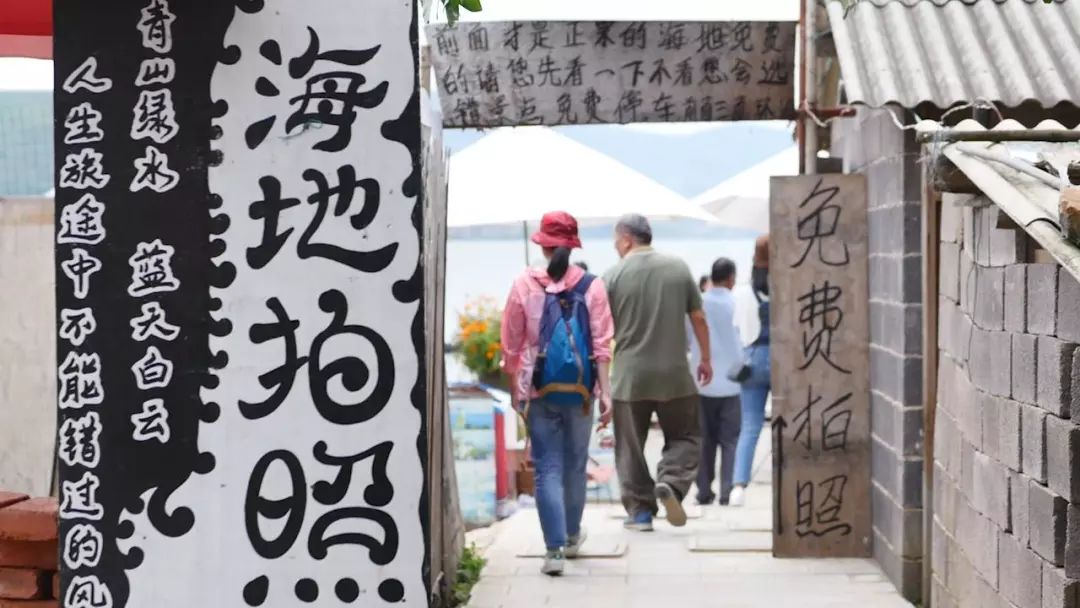 海地拍照
青山绿水 蓝天白云
人生旅途中不能错过的风
前面才是正的海地免费
的请您先看一下不看您会选
错景点免费停车前面
免费拍照